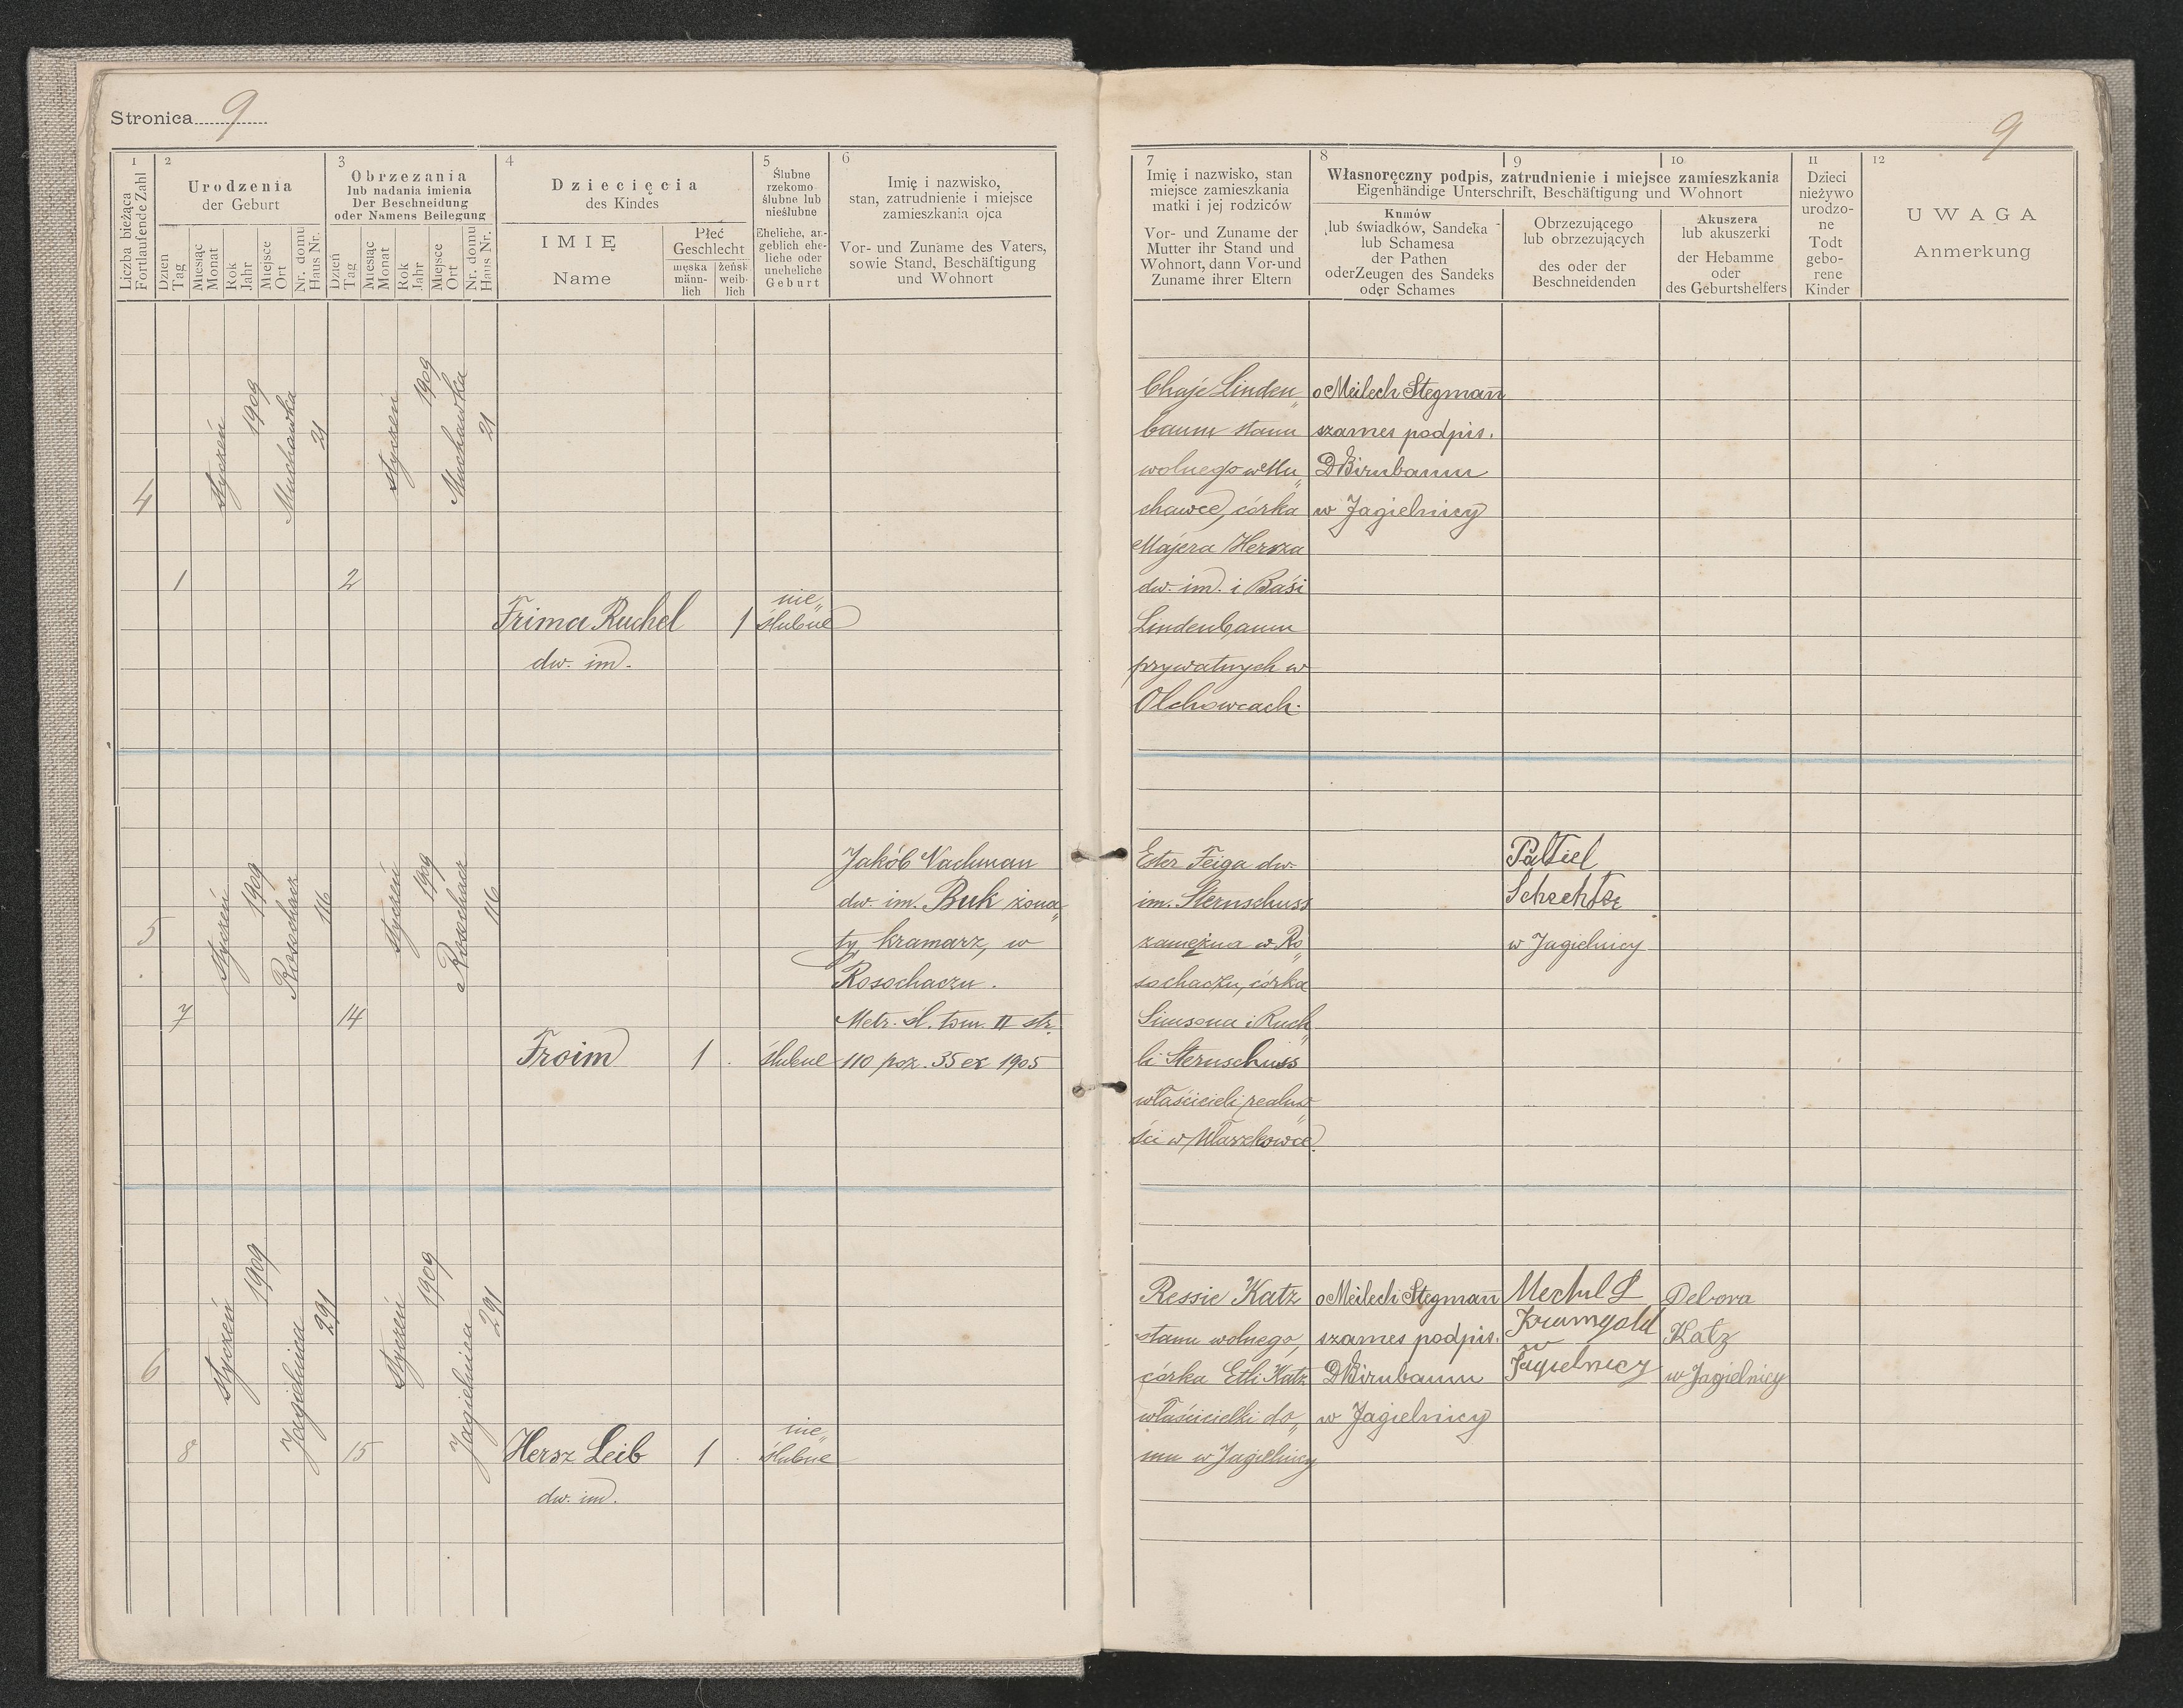 Stronica 9
9
1
Liczba bieżąca
Fortlaufende Zahl
2
Urodzenia
der Geburt
Dzień
Tag
Miesiąc
Monat
Rok
Jahr
Miejsce
Ort
Nr. domu
Haus Nr.
3
Obrzezania
lub nadania imienia
Der Beschneidung
oder Namens Beilegung
Dzień
Tag
Miesiąc
Monat
Rok
Jahr
Miejsce
Ort
Nr. domu
Haus Nr.
4
Dziecięcia
des Kindes
IMIĘ
Name
Płeć
Geschlecht
męska
männ-
lich
żeńsk
weib-
lich
5
Ślubne
rzekomo
ślubne lub
nieślubne
Eheliche, an-
geblich ehe-
liche oder
uneheliche
Geburt
6
Imię i nazwisko,
stan, zatrudnienie i miejsce
zamieszkania ojca
Vor- und Zuname des Vaters,
sowie Stand, Beschäftigung
und Wohnort
7
Imię i nazwisko, stan
miejsce zamieszkania
matki i jej rodziców
Vor- und Zuname der
Mutter ihr Stand und
Wohnort, dann Vor-und
Zuname ihrer Eltern
8
9
10
Własnoręczny podpis, zatrudnienie i miejsce zamieszkania
Eigenhändige Unterschrift, Beschäftigung und Wohnort
Kumów
lub świadków, Sandeka
lub Schamesa
der Pathen
oderZeugen des Sandeks
oder Schames
Obrzezującego
lub obrzezujących
des oder der
Beschneidenden
Akuszera
lub akuszerki
der Hebamme
oder
des Geburtshelfers
11
Dzieci
nieżywo
urodzo-
ne
Todt
gebo-
rene
Kinder
12
UWAGA
Anmerkung
4
1
styczeń
1909
Muchawka
21
2
styczeń
1909
Muchawka
21
Frima Ruchel
dw. im.
1
nie„
ślubne
Chaje Linden„
baum stanu
wolnego w Mu„
chawce, córka
Majera Hersza
dw. im. i Baśi
Lindenbaum
prywatnych w
Olchowcach.
o Meilech Stegman
szames podpis.
DBirnbaum
w Jagielnicy
5
7
styczeń
1909
Rosochacz
116
14
styczeń
1909
Rosochacz
116
Froim
1
ślubne
Jakób Nachman
dw. im. Buk żona„
ty, kramarz, w
Rosochaczu.
Metr. śl. tom. II str.
110 poz. 35 ex 1905
Ester Feiga dw.
im. Sternschuss
zamężna w Ro„
sochaczu, córka
Simsona i Ruch„
li Sternschuss
właścicieli realno„
ści w Ułaszkowce.
Paltiel
Schechter
w Jagielnicy
6
8
styczeń
1909
Jagielnica
291
15
styczeń
1909
Jagielnica
291
Hersz Leib
dw. im.
1
nie„
ślubne
Ressie Katz
stanu wolnego,
córka Etli Katz
właścicielki do„
mu w Jagielnicy
o Meilech Stegman
szames podpis.
DBirnbaum
w Jagielnicy
Mechel L
Krumgold
w
Jagielnicy
Debora
Katz
w Jagielnicy